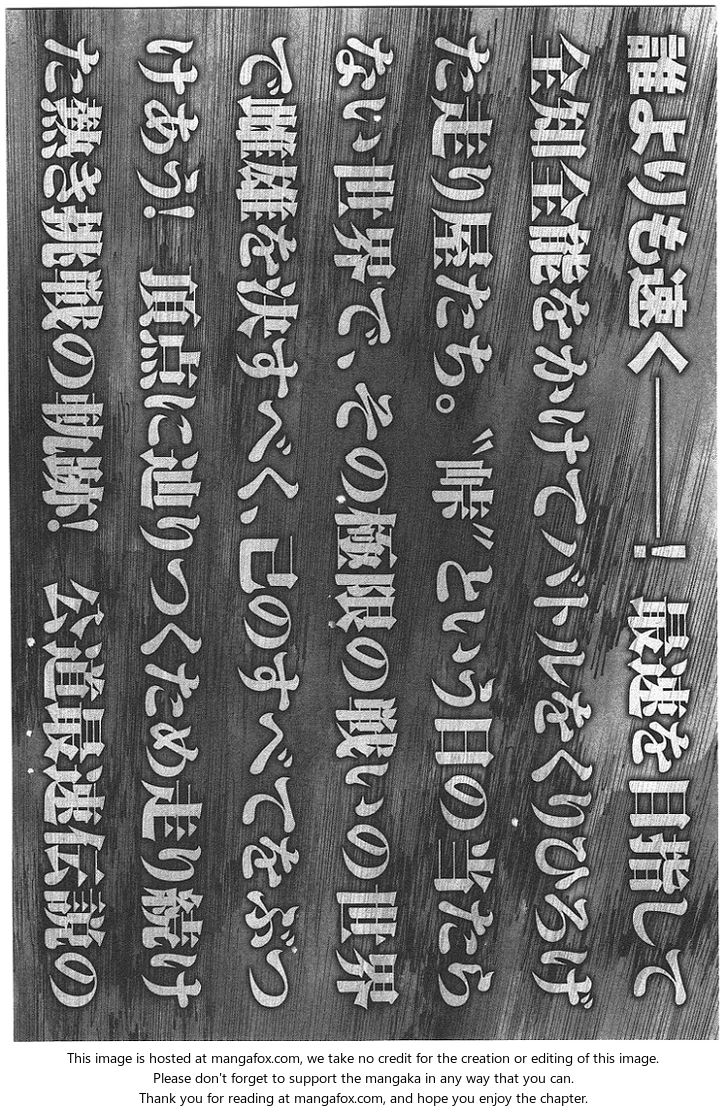 誰よりも速く――！ 最速を目指して
全知全能をかけてバトルをくりひろげ
た走り屋たち。〝峠〟という日の当たら
ない世界で、その極限の戦いの世界
で雌雄を決すべく、己のすべてをぶつ
けあう！ 頂点に辿りつくため走り続け
た熱き挑戦の軌跡！ 公道最速伝説の
This image is hosted at mangafox.com, we take no credit for the creation or editing of this image.
Please don't forget to support the mangaka in any way that you can.
Thank you for reading at mangafox.com, and hope you enjoy the chapter.